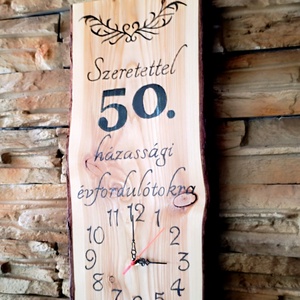 Szeretettel
50.
házassági
évfordulótokra
11 12 1
10 2
9 3
8 4
7 6 5